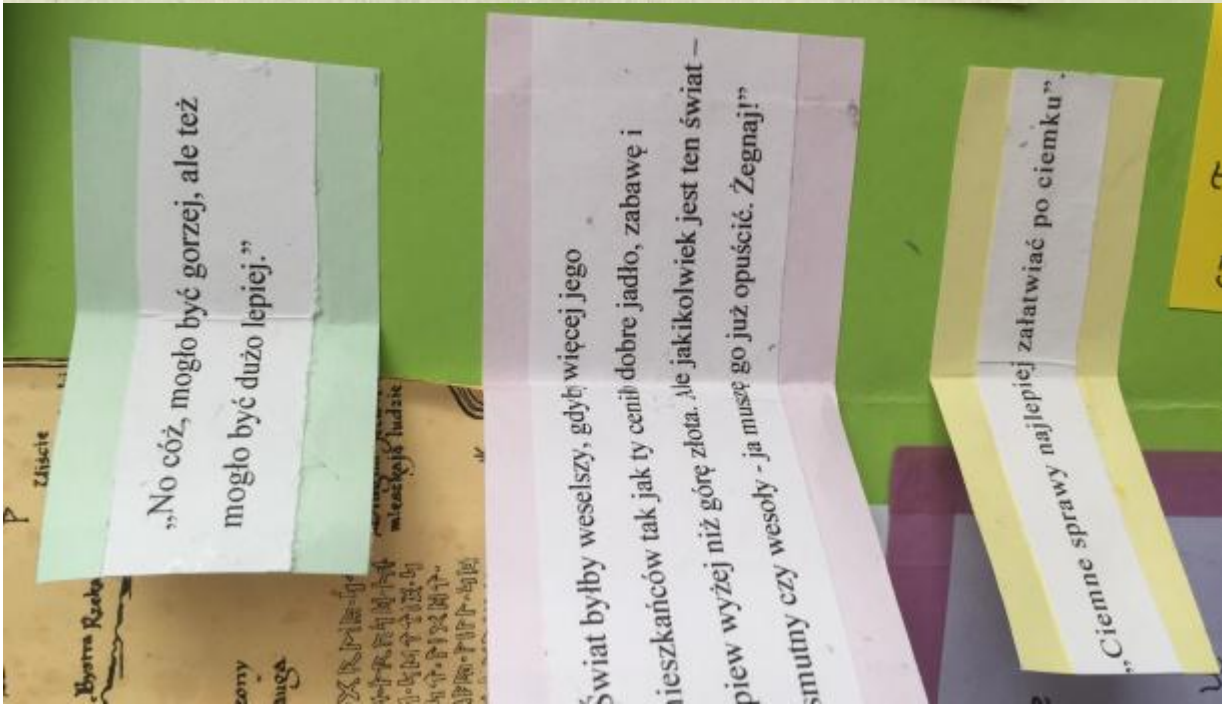 „No cóż, mogło być gorzej, ale też
mogło być dużo lepiej.”
Świat byłby weselszy, gdyby więcej jego
mieszkańców tak jak ty cenił dobre jadło, zabawę i
śpiew wyżej niż górę złota. Ale jakikolwiek jest ten świat –
smutny czy wesoły - ja muszę go już opuścić. Żegnaj!”
„Ciemne sprawy najlepiej załatwiać po ciemku”.
Bystra Rzeka
mieszkają ludzie